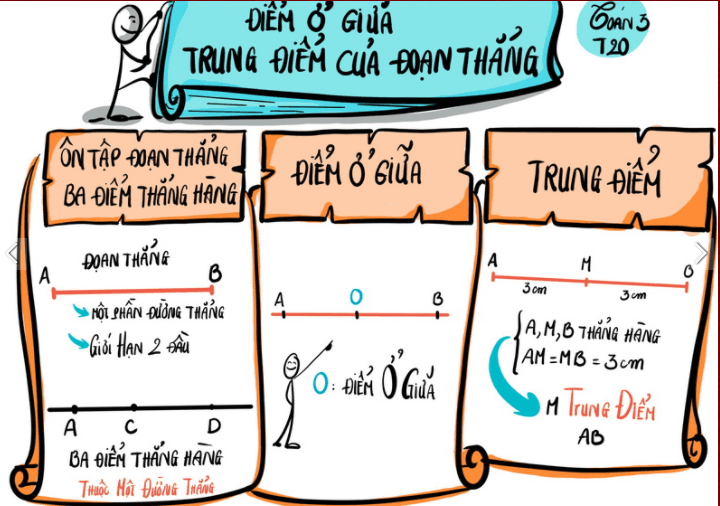 ĐIỂM Ở GIỮA
TRUNG ĐIỂM CỦA ĐOẠN THẲNG
TOÁN 3
T20
ÔN TẬP ĐOẠN THẲNG
BA ĐIỂM THẲNG HÀNG
ĐOẠN THẲNG
A B
MỘT PHẦN ĐƯỜNG THẲNG
GIỚI HẠN 2 ĐẦU
A C D
BA ĐIỂM THẲNG HÀNG
THUỘC MỘT ĐƯỜNG THẲNG
ĐIỂM Ở GIỮA
A O B
O: ĐIỂM Ở GIỮA
TRUNG ĐIỂM
A M B
3cm 3cm
A, M, B THẲNG HÀNG
AM = MB = 3cm
M TRUNG ĐIỂM
AB